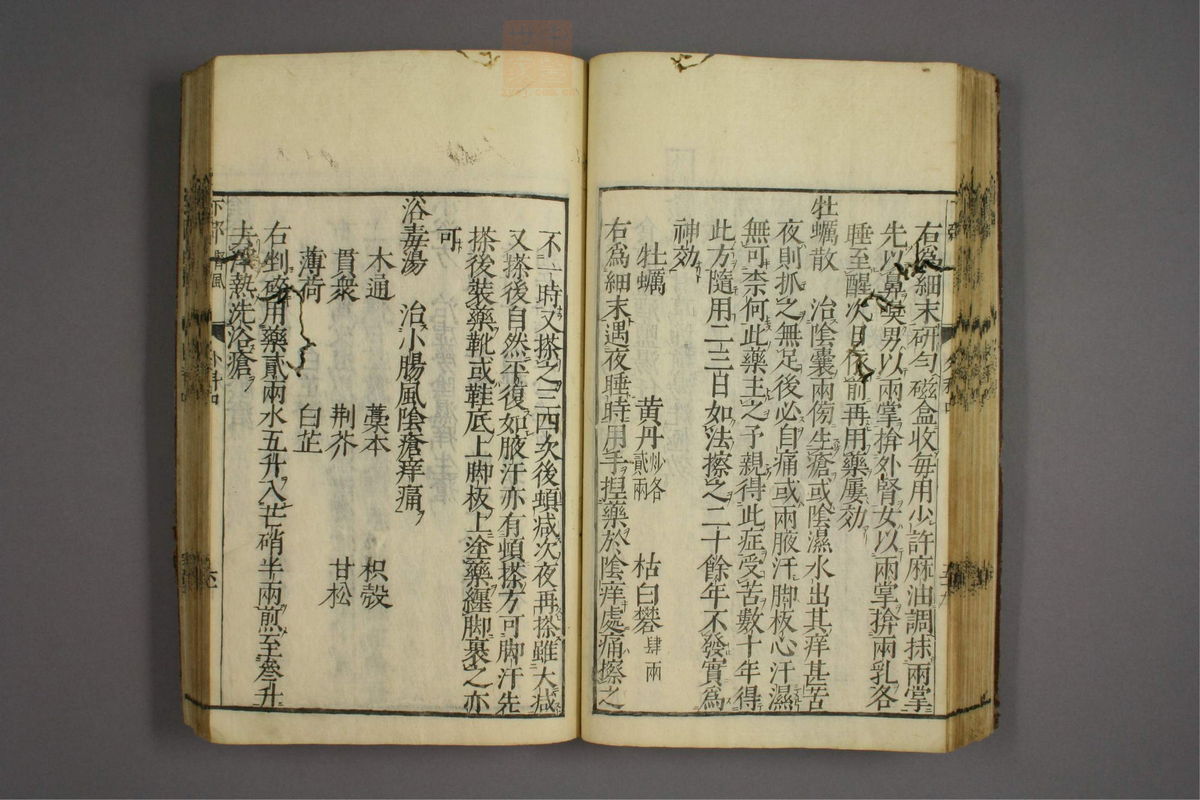 右爲細末研勻磁盒收每用少許麻油調抹兩掌
先以鼻嗅男以兩掌揜外腎女以兩掌揜兩乳各
睡至醒次日依前再用藥屢効
牡蠣散 治陰囊兩傍生瘡或陰濕水出其痒甚苦
夜則抓之無足後必自痛或兩腋汗脚板心汗濕
無可柰何此藥主之予親得此症受苦數十年得
此方隨用二三日如法擦之二十餘年不發實爲
神効
牡蠣 黄丹炒各貳兩 枯白礬肆兩
右爲細末遇夜睡時用手捏藥於陰痒處痛擦之
不一時又搽之三四次後頓減次夜再搽雖大減
又搽後自然不復如腋汗亦有頓搽方可脚汗先
搽後裝藥靴或鞋底上脚板上塗藥纏脚裹之亦
可
浴毒湯 治小腸風陰瘡痒痛
木通 藁本 枳殼
貫衆 荆芥 甘松
薄荷 白芷
右剉碎用藥貳兩水五升入芒硝半兩煎至叁升
去滓熱洗浴瘡